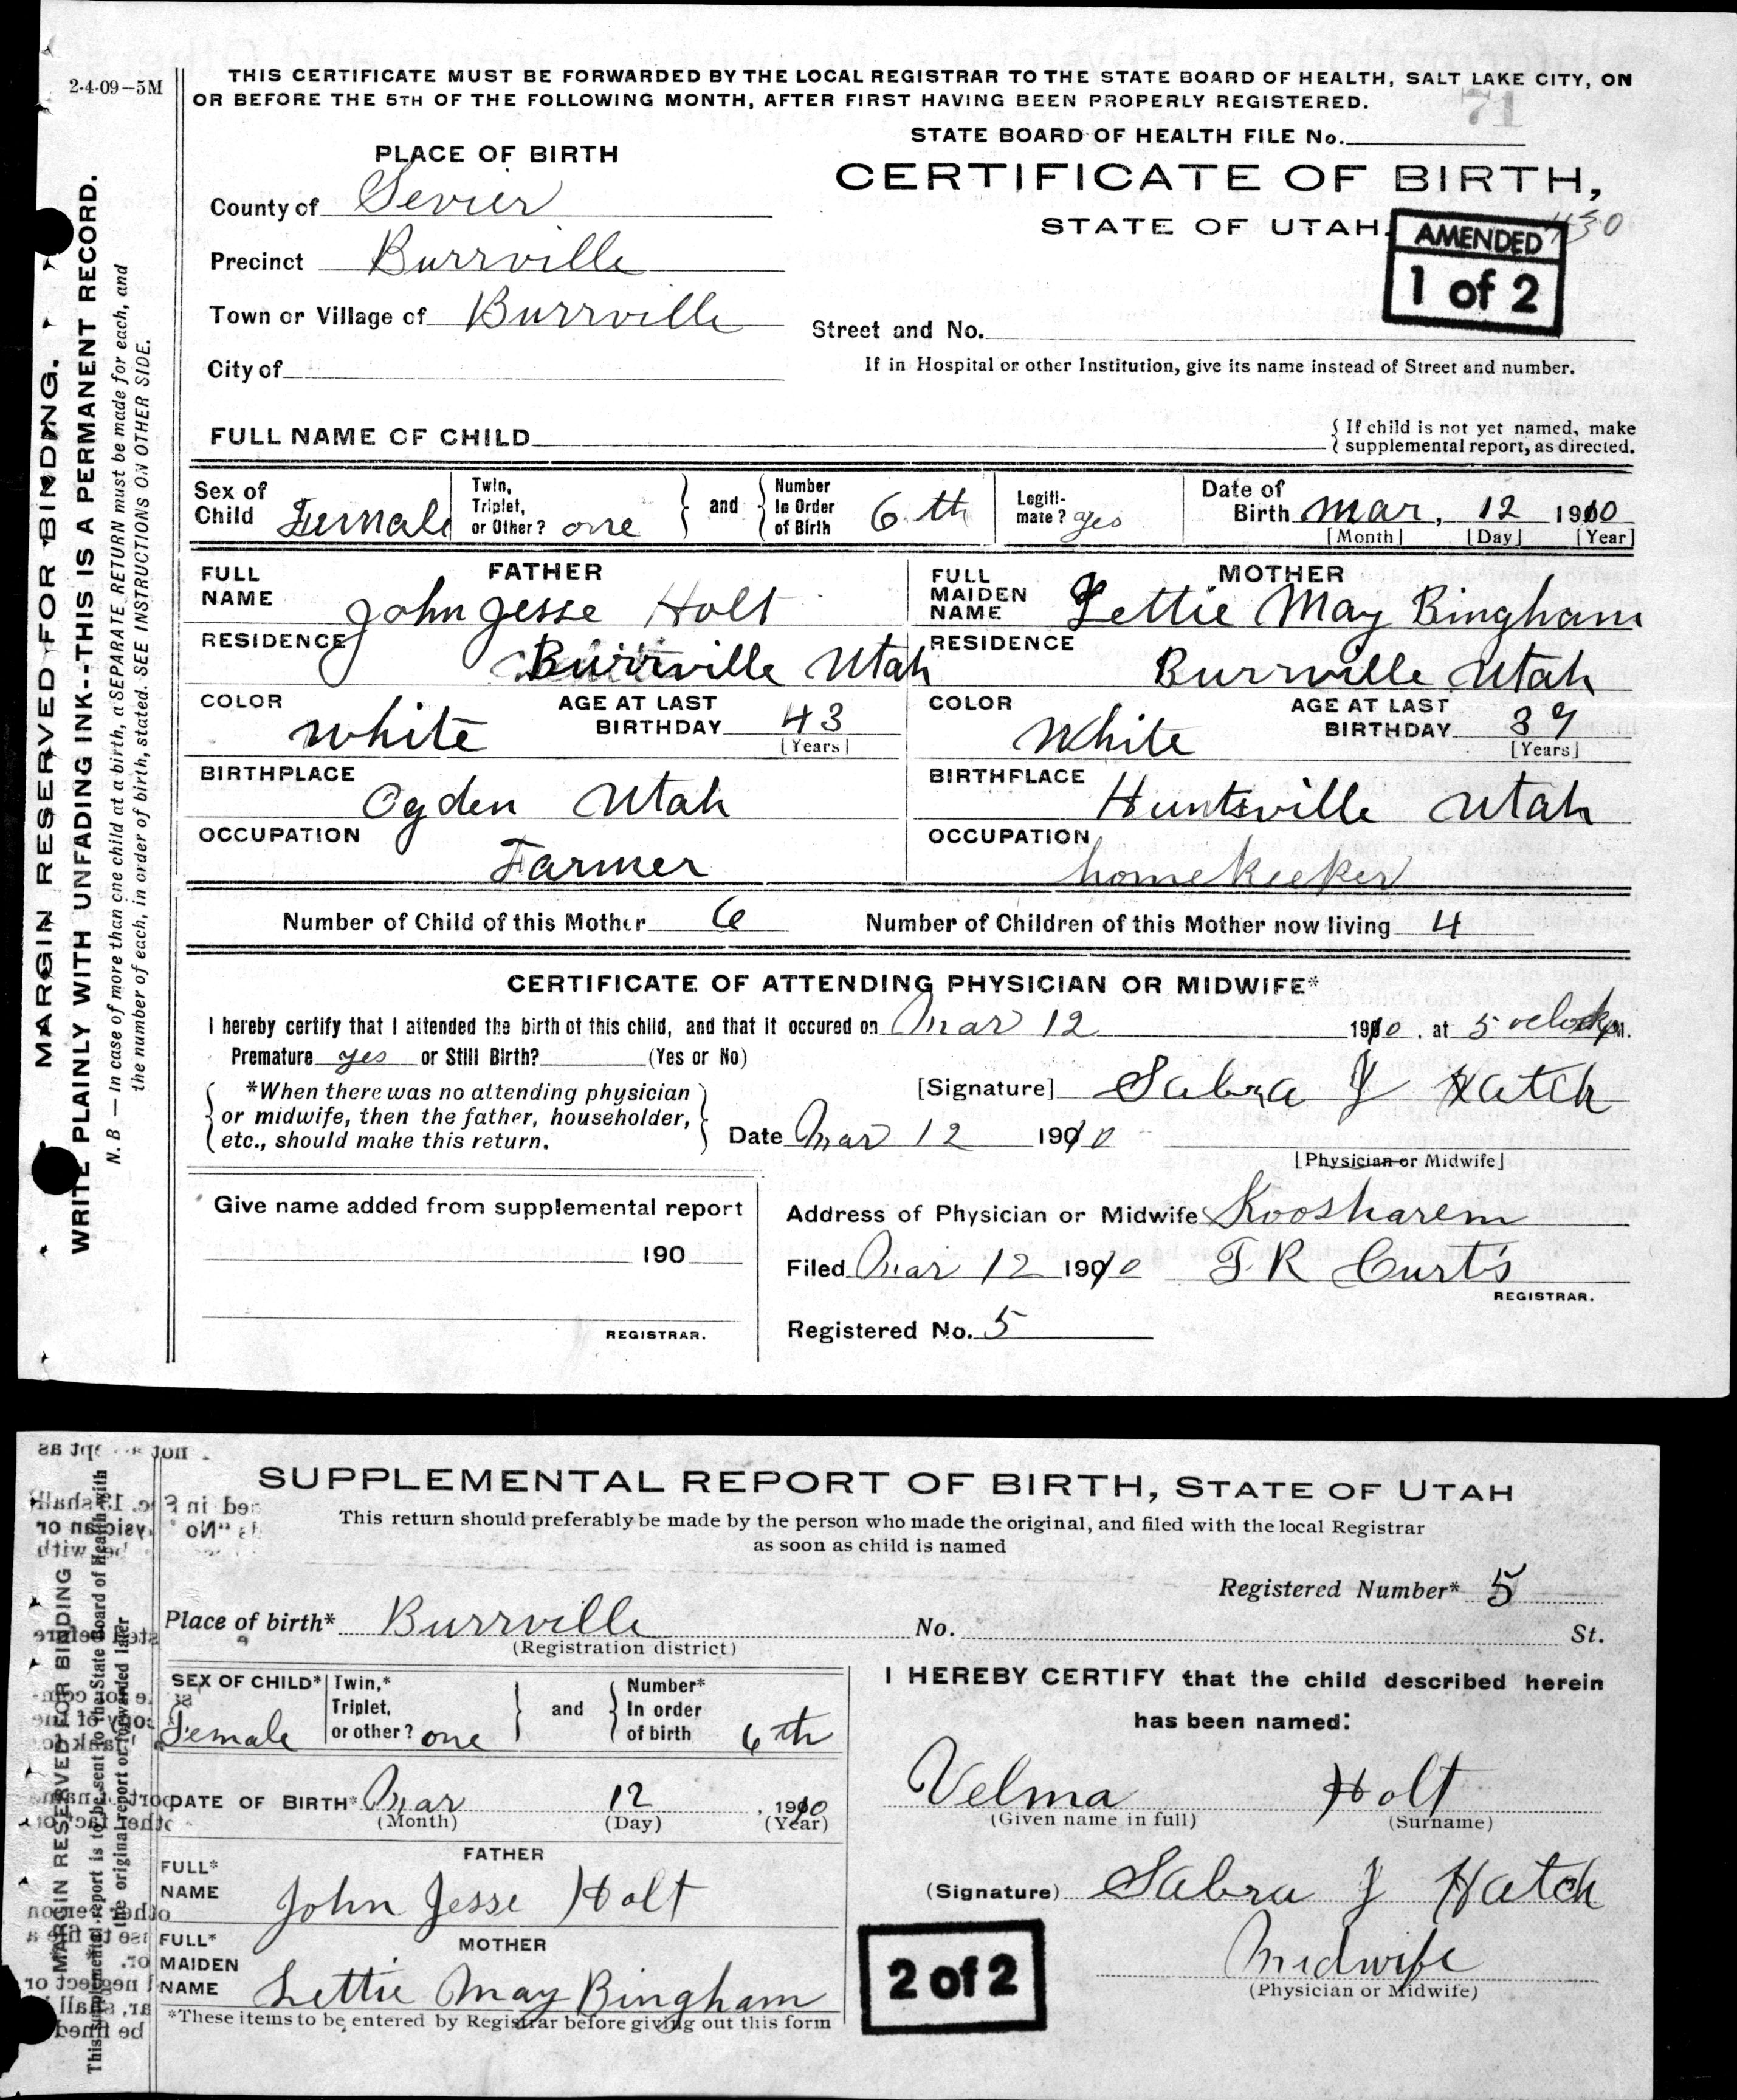 2-4-09—5M
THIS CERTIFICATE MUST BE FORWARDED BY THE LOCAL REGISTRAR TO THE STATE BOARD OF HEALTH, SALT LAKE CITY, ON
OR BEFORE THE 5TH OF THE FOLLOWING MONTH, AFTER FIRST HAVING BEEN PROPERLY REGISTERED.
71
STATE BOARD OF HEALTH FILE No.
PLACE OF BIRTH
CERTIFICATE OF BIRTH,
County of Sevier
STATE OF UTAH.
AMENDED
1 of 2
Precinct Burrville
Town or Village of Burrville
Street and No.
City of
If in Hospital or other Institution, give its name instead of Street and number.
FULL NAME OF CHILD
{ If child is not yet named, make
{ supplemental report, as directed.
Sex of Child Female
Twin, Triplet, or Other? one } and { Number In Order of Birth 6th
Legiti-mate? yes
Date of Birth Mar. 12 1910
[Month] [Day] [Year]
FATHER
FULL NAME John Jesse Holt
MOTHER
FULL MAIDEN NAME Lettie May Bingham
RESIDENCE Burrville Utah
RESIDENCE Burrville Utah
COLOR White AGE AT LAST BIRTHDAY 43 [Years]
COLOR White AGE AT LAST BIRTHDAY 39 [Years]
BIRTHPLACE Ogden Utah
BIRTHPLACE Huntsville Utah
OCCUPATION Farmer
OCCUPATION homekeeker
Number of Child of this Mother 6 Number of Children of this Mother now living 4
CERTIFICATE OF ATTENDING PHYSICIAN OR MIDWIFE*
I hereby certify that I attended the birth of this child, and that it occured on Mar 12 1910, at 5 oclock pM.
Premature yes or Still Birth? (Yes or No)
{ *When there was no attending physician }
{ or midwife, then the father, householder, }
{ etc., should make this return. }
[Signature] Sabra J Hatch
Date Mar 12 1910
[Physician or Midwife]
Give name added from supplemental report
190
REGISTRAR.
Address of Physician or Midwife Koosharem
Filed Mar 12 1910 T. R Curtis
REGISTRAR.
Registered No. 5
MARGIN RESERVED FOR BINDING.
WRITE PLAINLY WITH UNFADING INK--THIS IS A PERMANENT RECORD.
N. B — In case of more than one child at a birth, a SEPARATE RETURN must be made for each, and
the number of each, in order of birth, stated. SEE INSTRUCTIONS ON OTHER SIDE.
SUPPLEMENTAL REPORT OF BIRTH, STATE OF UTAH
This return should preferably be made by the person who made the original, and filed with the local Registrar
as soon as child is named
Registered Number* 5
Place of birth* Burrville No. St.
(Registration district)
SEX OF CHILD* Female
Twin,* Triplet, or other? one } and { Number* In order of birth 6th
DATE OF BIRTH* Mar 12, 1910
(Month) (Day) (Year)
FATHER
FULL* NAME John Jesse Holt
MOTHER
FULL* MAIDEN NAME Lettie May Bingham
*These items to be entered by Registrar before giving out this form
I HEREBY CERTIFY that the child described herein
has been named:
Velma Holt
(Given name in full) (Surname)
(Signature) Sabra J Hatch
Midwife
(Physician or Midwife)
2 of 2
MARGIN RESERVED FOR BINDING
This supplemental report is to be sent to the State Board of Health with
the original report or forwarded later